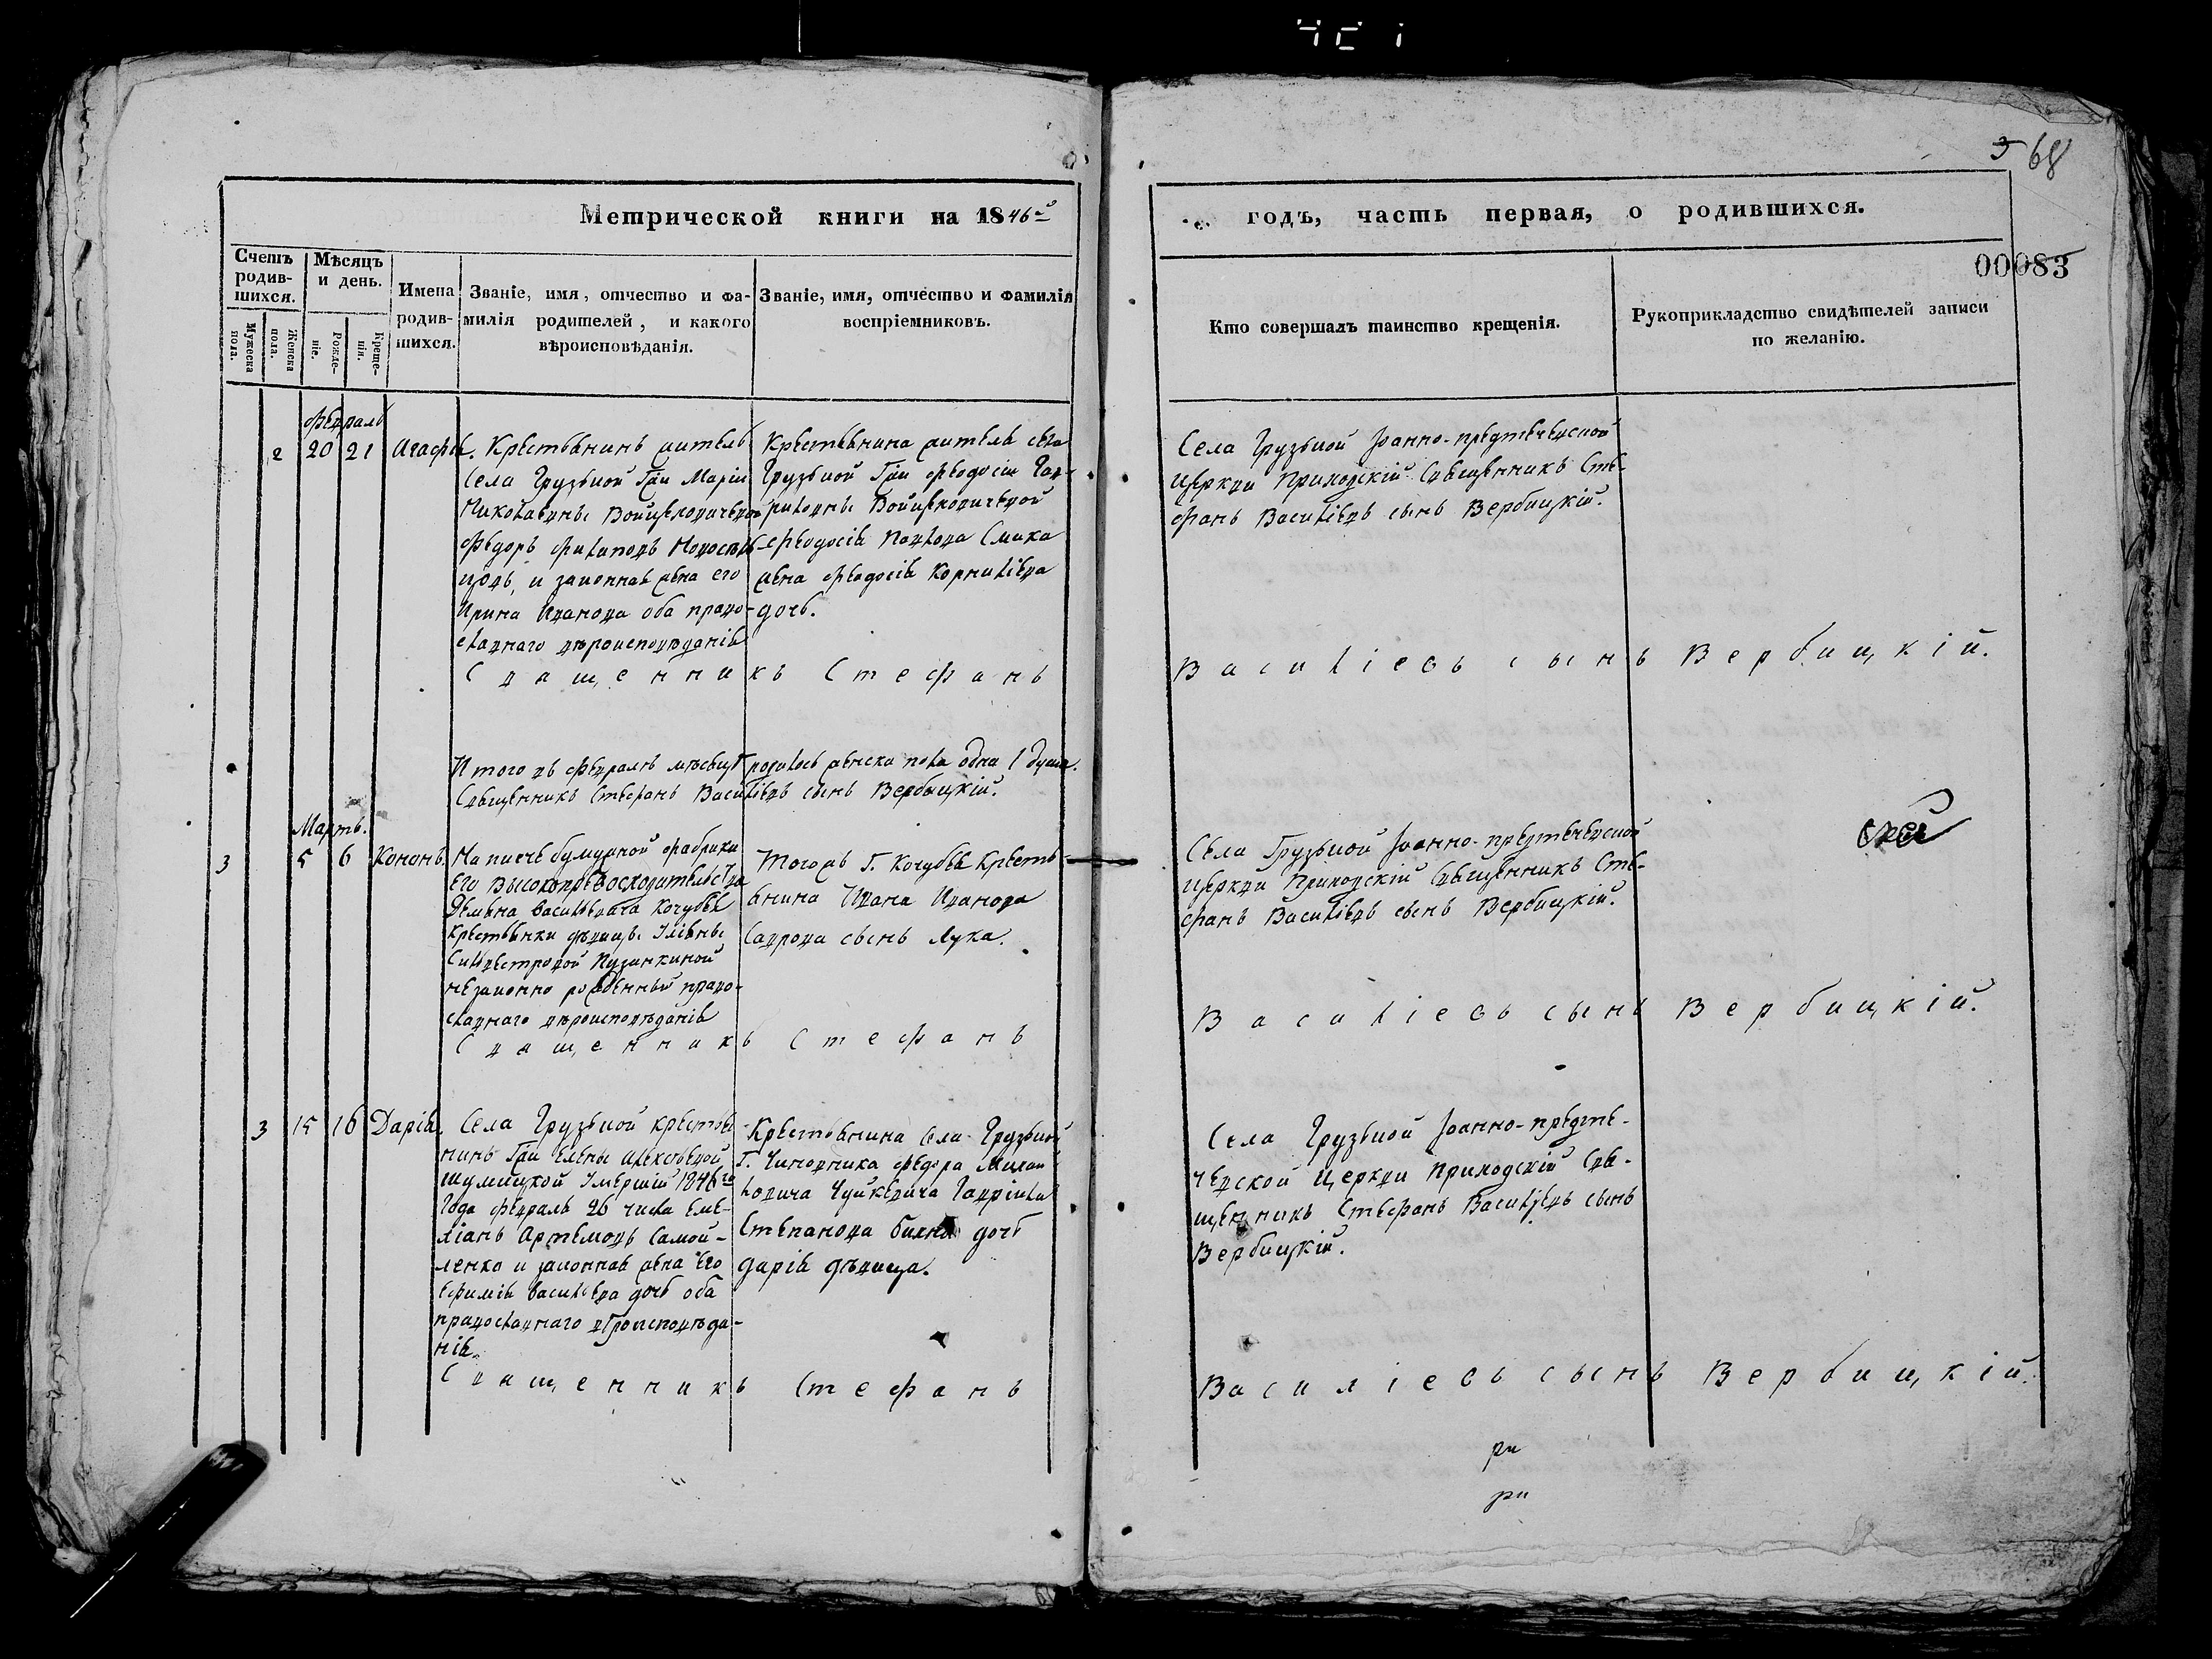 568
Метрической книги на 1846й
годъ, часть первая, о родившихся.
00083
Счетъ родив-шихся.
Мѣсяцъ и день.
Мужеска пола.
Женска пола.
Рожде-нiе.
Креще-нiя.
Имена родив-шихся.
Званiе, имя, отчество и фа-
милiя родителей, и какого
вѣроисповѣданiя.
Званiе, имя, отчество и фамилiя
воспрiемниковъ.
Кто совершалъ таинство крещенiя.
Рукоприкладство свидѣтелей записи
по желанiю.
Февраль
2 20 21 Агафiя.
Крестьянинъ житель
села Грузькой Гжи Марiи
Николаевны Войцеховичевой
Федоръ Филиповъ
и законная жена его
Ирина Иванова оба право-
славнаго вѣроисповѣданiя
Крестьянина житель села
Грузькой Гжи Феодосiи Гав-
риловны Войцеховичевой
Феодосiя Павлова Смыка
жена Феодосiя Корнилiева
дочь.
Села Грузькой Iоанно-предтечевской
Церкви Приходскiй Священникъ Сте-
фанъ Василiевъ сынъ Вербицкiй.
Священникъ Стефанъ
Василiевъ сынъ Вербицкiй.
Итого въ Февралѣ мѣсяцѣ родилось женска пола одна 1 душа.
Священникъ Стефанъ Василiевъ сынъ Вербицкiй.
Мартъ.
3 5 6 Кононъ.
На писчебумажной фабрики
Его Высокопревосходительства
Демьяна Васильевича Кочубея
Крестьянки дѣвицы Улiяны
Сильвестровой Пузанкиной
незаконно рожденный право-
славнаго вѣроисповѣданiя
Тогожъ Г. Кочубея Кресть-
янина Ивана Иванова
Саврова сынъ Лука.
Села Грузькой Iоанно-предтечевской
Церкви Приходскiй Священникъ Сте-
фанъ Василiевъ сынъ Вербицкiй.
Священникъ Стефанъ
Василiевъ сынъ Вербицкiй.
3 15 16 Дарiя.
Села Грузькой крестья
нинъ Гжи Елены Алексѣевой
Шумицкой Умершiй 1846го
Года Февраля 26 числа Еме-
лiанъ Артемовъ Самой-
ленко и законная жена его
Ефимiя Васильева дочь оба
православнаго вѣроисповѣда-
нiя.
Крестьянина села Грузькой
Г. Чиновника Федора Михай
ловича Чуйкевича Гаврiила
Степанова дочь
дарiя дѣвица.
Села Грузькой Iоанно-предте-
чевской Церкви Приходскiй Свя-
щенникъ Стефанъ Василiевъ сынъ
Вербицкiй.
Священникъ Стефанъ
Василiевъ сынъ Вербицкiй.
ри
ри